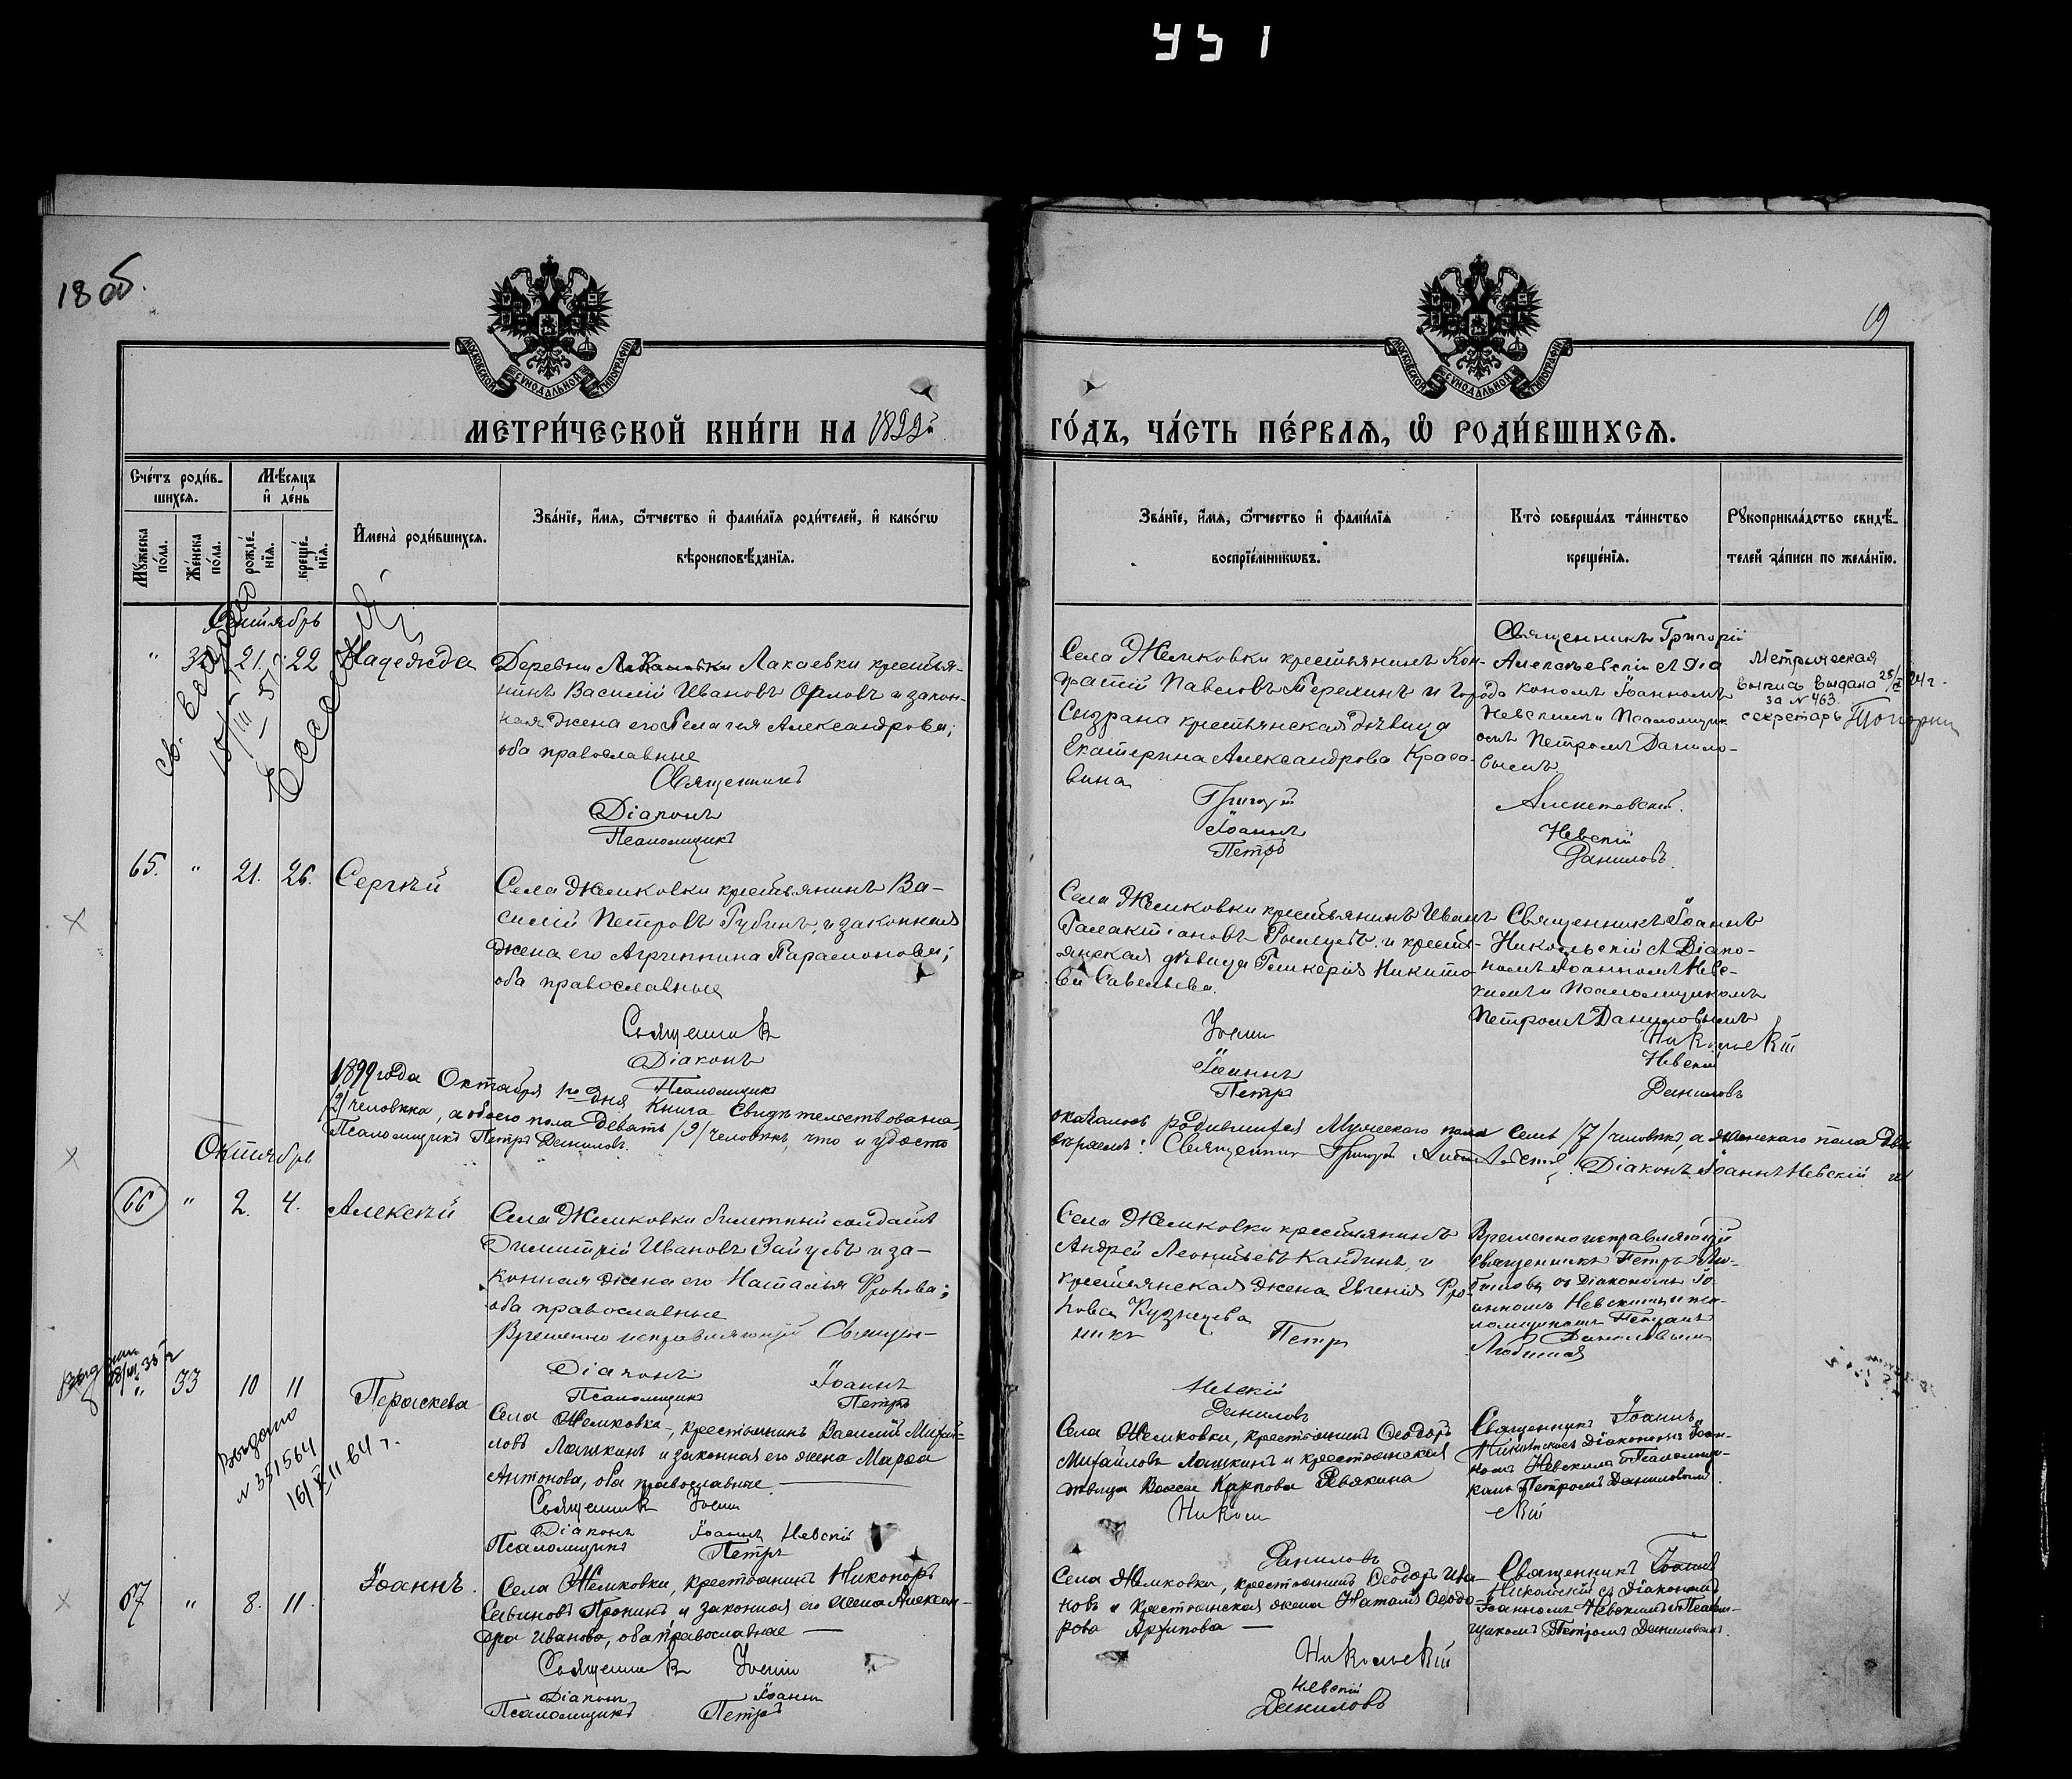 451
18 об.
19
МОСКОВСКОЙ СѴНОДАЛЬНОЙ ТИПОГРАФІИ
МОСКОВСКОЙ СѴНОДАЛЬНОЙ ТИПОГРАФІИ
МЕТРИ́ЧЕСКОЙ КНИ́ГИ НА 1899й
ГО́ДЪ, ЧА́СТЬ ПЕ́РВАѦ, Ѡ҆ РОДИ́ВШИХСѦ.
Сче́тъ роди́в-
шихсѧ.
Мѣ́сѧцъ
и҆ де́нь
Мꙋ́жеска по́ла.
Же́нска по́ла.
рожде́-нїѧ.
креще́-нїѧ.
И҆мена̀ роди́вшихсѧ.
Зва́нїе, и҆́мѧ, ѻ҆́тчество и҆ фами́лїѧ роди́телей, и҆ како́гѡ
вѣроисповѣ́данїѧ.
Зва́нїе, и҆́мѧ, ѻ҆́тчество и҆ фами́лїѧ
воспрїе́мникѡвъ.
Кто̀ соверша́лъ та́инство
креще́нїѧ.
Рꙋкоприкла́дство свидѣ́-
телей за́писи по жела́нїю.
Сентябрь
" 32 21. 22 Надежда
Деревни Лакаевки крестья-
нинъ Василій Ивановъ Орловъ и закон-
ная жена его Пелагія Александрова;
оба православные
Священникъ
Діаконъ
Псаломщикъ
Села Жемковки крестьянинъ Кон-
дратій Павловъ Терехинъ и города
Сызрана крестьянская дѣвица
Екатерина Александрова Краса-
вина
Григорій
Іоаннъ
Петръ
Священникъ Григорій
съ Діа-
кономъ Іоанномъ
Невскимъ и Псаломщик-
омъ Петромъ Данило-
вымъ
Невскій
Даниловъ.
Метрическая
выпись выдана 24 г.
за № 463.
секретарь
65. " 21. 26. Сергѣй
Села Жемковки крестьянинъ Ва-
силій Петровъ Губинъ, и законная
жена его Агриппина Парамонова;
оба православные
Священникъ
Діаконъ
Псаломщикъ
Села Жемковки крестьянинъ Иванъ
Галактіоновъ и кресть-
янская дѣвица Гликерія Никито-
ва Савельева.
Іоаннъ
Іоаннъ
Петръ
Священникъ Іоаннъ
Никольскій съ Діако-
номъ Іоанномъ Невс-
кимъ и Псаломщикомъ
Петромъ Даниловымъ
Никольскій
Невскій
Даниловъ
1899 года Октября 1го дня Книга свидѣтельствована,
оказалось родившихся Мужескаго пола семь /7/ человѣкъ, а женскаго пола два
/2/ человѣка, а обоего пола Девять /9/ человѣкъ, что и удосто
вѣряемъ: Священникъ Григорій Діаконъ Іоаннъ Невскій и
Псаломщикъ Петръ Даниловъ.
Октябрь
66 " 2. 4. Алексѣй
Села Жемковки билетный солдатъ
Димитрій Ивановъ Зайцевъ и за-
конная жена его Наталья Фролова;
оба православные
Временно исправляющій Священ-
никъ Петръ
Діаконъ Іоаннъ
Псаломщикъ Петръ
Села Жемковки крестьянинъ
Андрей Леонтьевъ Кандинъ, и
крестьянская жена Евгенія Фро-
лова Кузнецова
Невскій
Даниловъ
Временно исправляющій
священникъ Петръ Лю-
бимовъ съ Діакономъ Іо-
анномъ Невскимъ и пса-
ломщикомъ Петромъ
Даниловымъ
" 33 10 11 Параскева
Села Жемковка, крестьянинъ Василій Михай-
ловъ Лашкинъ и законная его жена Марѳа
Антонова, оба православные
Священникъ Іоаннъ
Діаконъ Іоаннъ Невскій
Псаломщикъ Петръ
Села Жемковки, крестьянинъ Ѳеодоръ
Михайловъ Лашкинъ и крестьянская
дѣвица Васса Карпова Ревякина
Никольскій
Даниловъ
Священникъ Іоаннъ
Никольскій съ Діакономъ Іоан-
номъ Невскимъ и Псаломщи-
комъ Петромъ Даниловымъ.
Выдано
№ 351564
16/XII 64 г.
67 " 8. 11. Іоаннъ.
Села Жемковки, крестьянинъ Никоноръ
Савиновъ Пронинъ, и законная его жена Алексан-
дра Иванова, оба православные
Священникъ Іоаннъ
Діаконъ Іоаннъ
Псаломщикъ Петръ
Села Жемковки, крестьянинъ Ѳеодоръ Ива-
новъ и крестьянская жена Наталія Ѳеодо-
рова Архипова
Никольскій
Невскій
Даниловъ
Священникъ Іоаннъ
Никольскій съ Діакономъ
Іоанномъ Невскимъ и Псалом-
щикомъ Петромъ Даниловымъ.